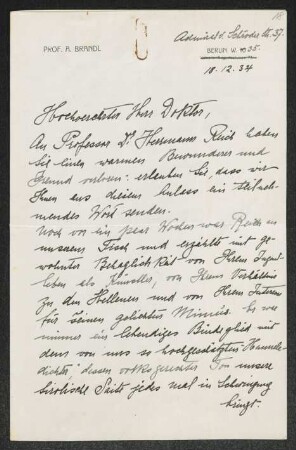 PROF. A. BRANDL
Admiral v. Schröder Str. 37.
BERLIN W. 35.
18.12.34
Hochverehrter Herr Doktor,
An Professor Dr Hermann Reich haben
Sie einen warmen Bewunderer und
Freund verloren: erlauben Sie, dass wir
Ihnen aus diesem Anlass ein teilneh-
mendes Wort senden.
Noch vor ein paar Wochen war Reich an
unserem Tisch und erzählte mit ge-
wohnter Behaglichkeit von Ihrem Jugend-
leben als Künstler, von Ihrem Verhältnis
zu den Hellenen und von Ihrem Interesse
für seinen geliebten Mimus. Es war
immer ein lebendiges Bindeglied mit
dem von uns so hochgeschätzten
dichter, dessen Ton unsere
tirolische Saite jedes mal in Schwingung
bringt.